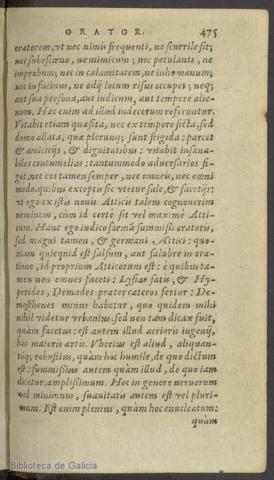 ORATOR. 475
oratorem, vt nec nimis frequenti, ne scurrile sit;
nec subobscœno, ne mimicum; nec petulanti, ne
improbum; nec in calamitatem, ne inhumanum;
nec in facinus, ne odij locum risus occupet; neq;
aut sua persona, aut iudicum, aut tempore alie-
num. Hæc enim ad illud indecorum referuntur.
Vitabit etiam quæsita, nec ex tempore ficta, sed
domo allata, quæ plerunq; sunt frigida: parcet
& amicitijs, & dignitatibus: vitabit insana-
biles contumelias: tantummodo aduersarios fi-
get, nec eos tamen semper, nec omneis, nec omni
modo. quibus exceptis sic vtetur sale, & facetijs:
vt ego ex istis nouis Atticis talem cognouerim
neminem, cùm id certè sit vel maximè Atti-
cum. Hanc ego iudico formã summissi oratoris,
sed magni tamen, & germani Attici: quo-
niam quicquid est salsum, aut salubre in ora-
tione, id proprium Atticorum est: è quibus ta-
men non omnes faceti: Lysias satis, & Hy-
perides, Demades præter cæteros fertur: De-
mosthenes minus habetur, quo quidem mihi
nihil videtur vrbanius, sed non tam dicax fuit,
quàm facetus: est autem illud acrioris ingenij,
hoc maioris artis. Vberius est aliud, aliquan-
toq; robustius, quàm hoc humile, de quo dictum
est: summissius autem quàm illud, de quo iam
dicetur, amplissimum. Hoc in genere neruorum
vel minimum, suauitatis autem est vel pluri-
mum. Est enim plenius, quàm hoc enucleatum:
quàm
Biblioteca de Galicia